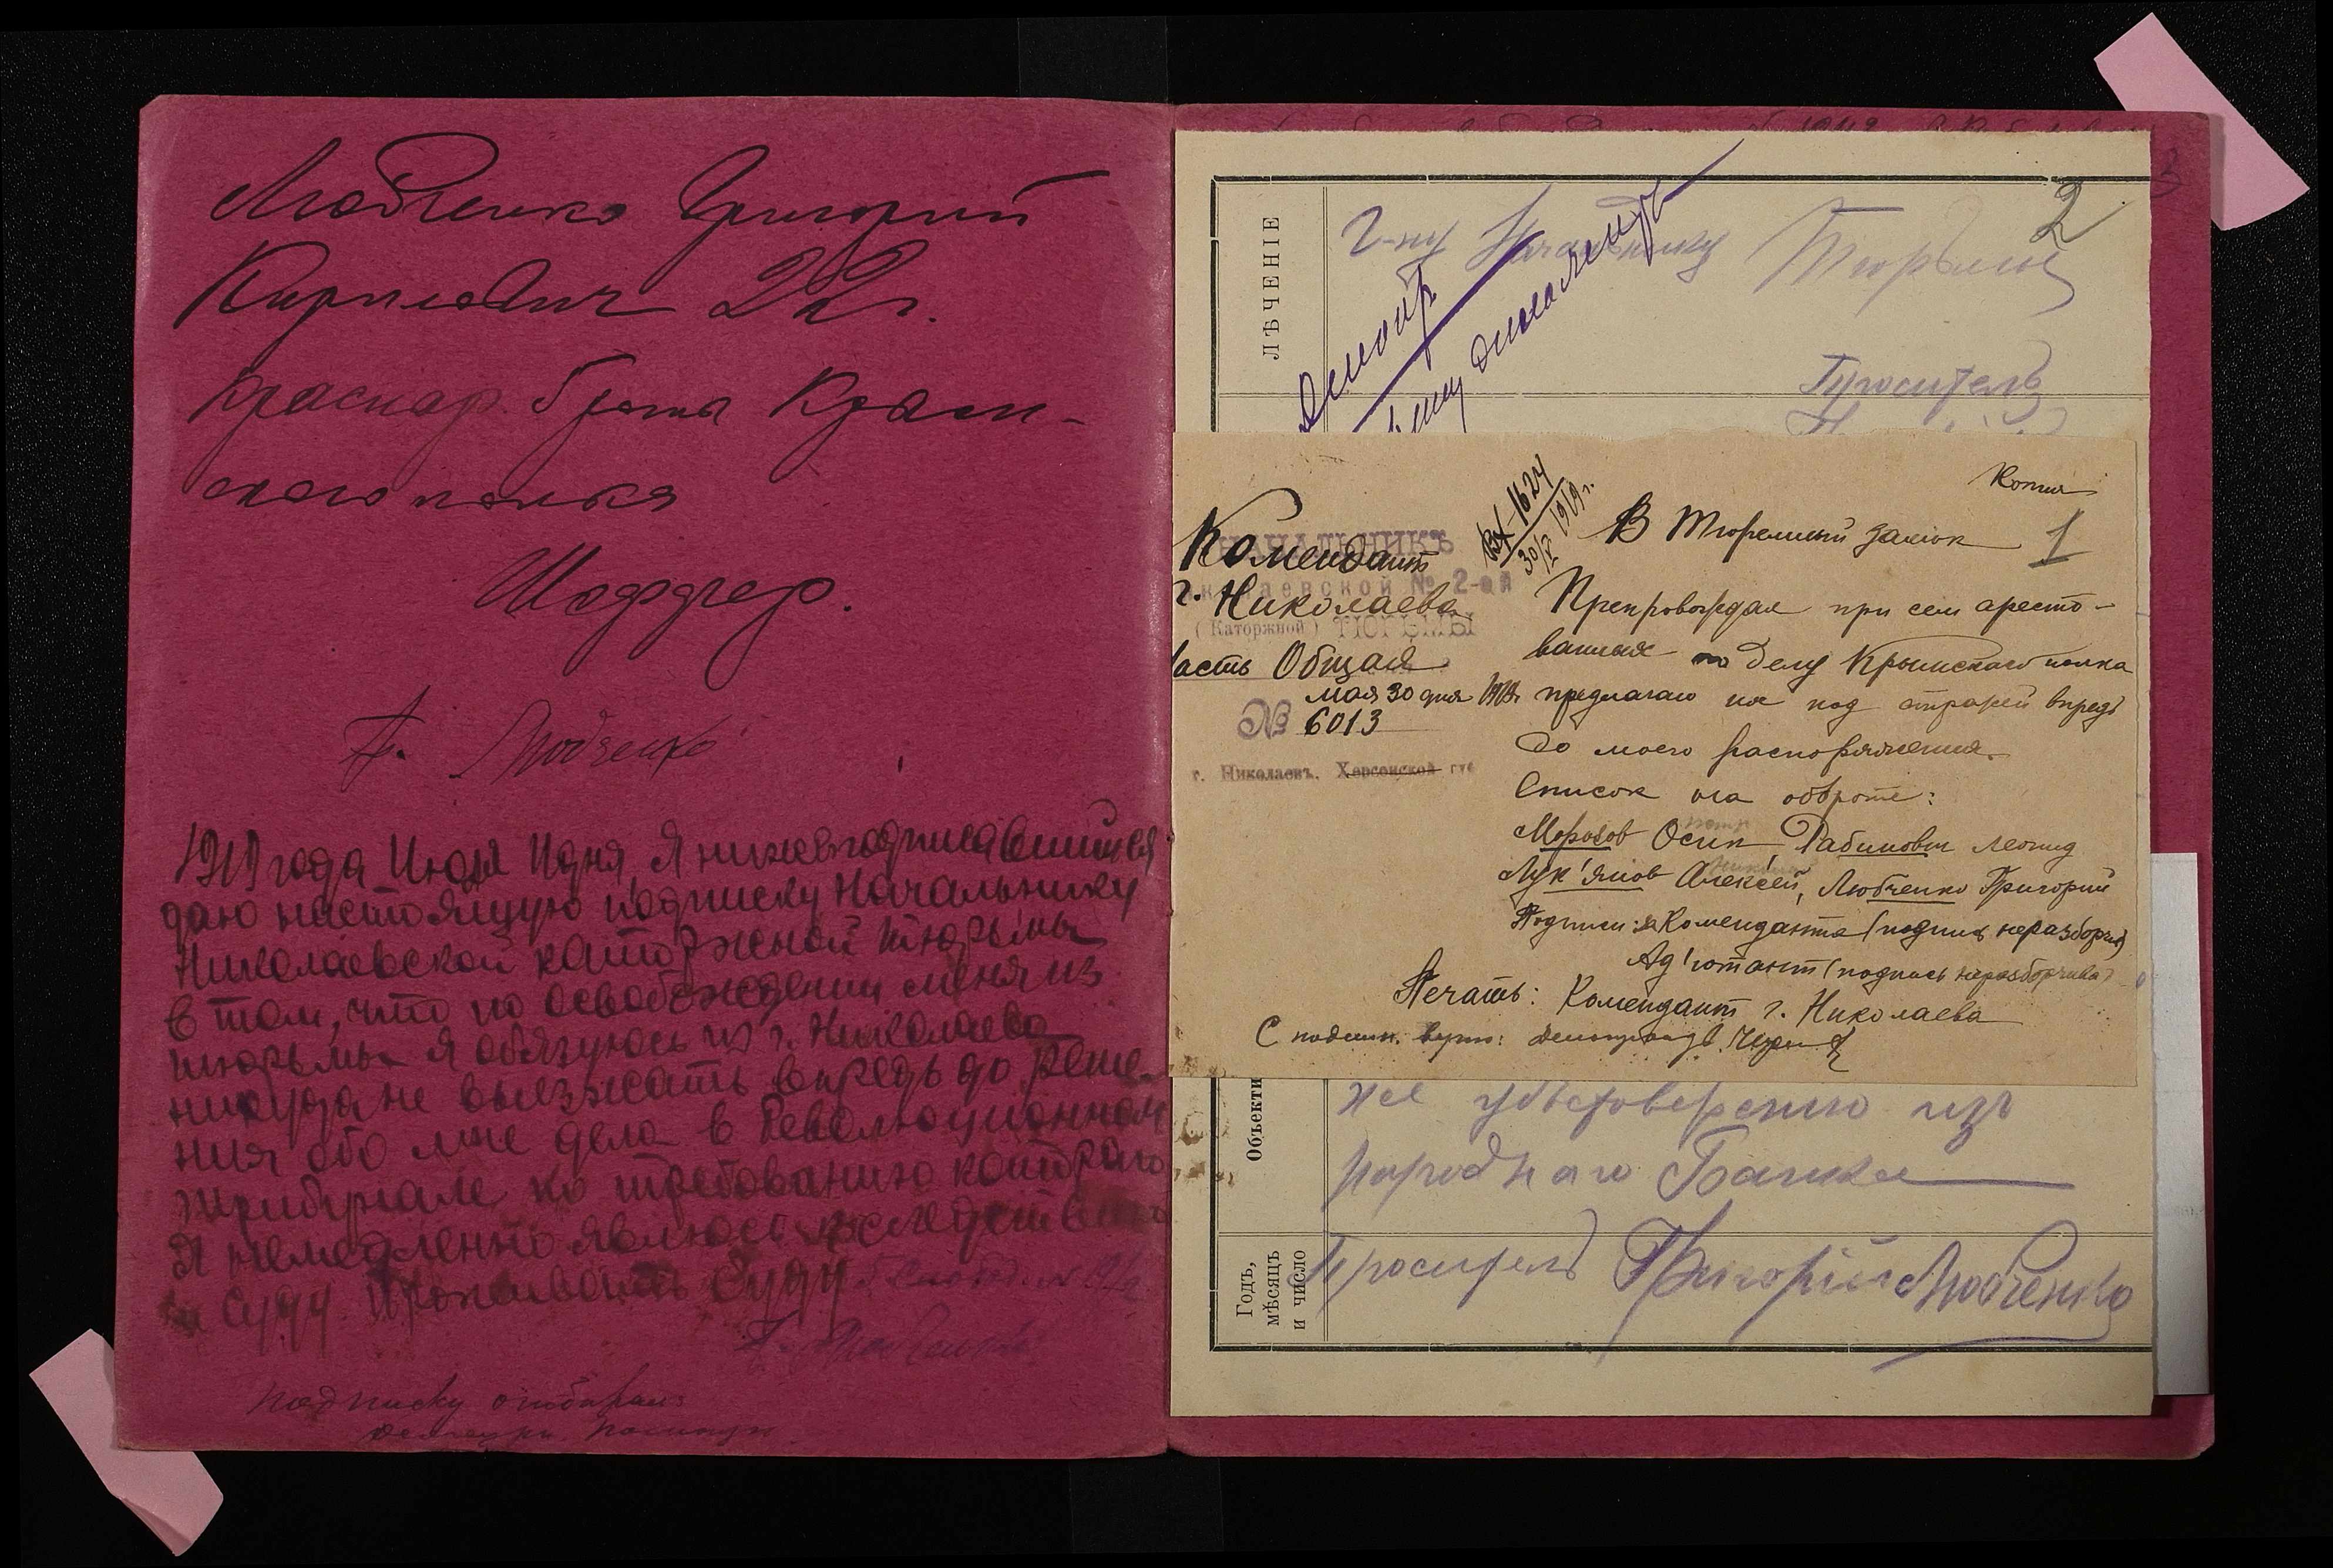 Любченко Григорий
Кирилович 22 г.
Красноар. брата Крым-
ского полка
Шоффер.
Г. Любченко
1919 года Июля 11 дня, Я нижеподписавшийся
даю настоящую подписку Начальнику
Николаевской каторжной тюрьмы
в том, что по освобождении меня из
тюрьмы я обязуюсь из г. Николаева
никуда не выезжать впредь до реше-
ния обо мне дела в Революционном
трибунале по требованию которого
Я немедленно явлюсь к следствию
и суду. Проживать буду
Г. Любченко
Подписку отбирал:
ЛѢЧЕНІЕ
Г-ну Начальнику Тюрьмы
2
Проситель
Копия
Вх. 1624
30/V 1919 г.
НАЧАЛЬНИКЪ
Комендант
Николаевской № 2-ой
г. Николаева
(Каторжной) ТЮРЬМЫ
Часть Общая
мая 30 дня 1919
№ 6013
г. Николаевъ, Херсонской губ
В Тюремный замок 1
Препровождая при сем аресто-
ванных по делу Крымского полка
предлагаю их под стражей впредь
до моего распоряжения.
Список на обороте:
Морозов Осип Рабинович Леонид
Лук'янов Алексей, Любченко Григорий
Подписи: Коменданта (подпись неразборчива)
Ад'ютант (подпись неразборчива)
Печать: Комендант г. Николаева
С подлин. верно:
Объекти
же удостоверению изъ
народнаго Банка
Годъ,
мѣсяцъ
и число
Проситель Григорій Любченко